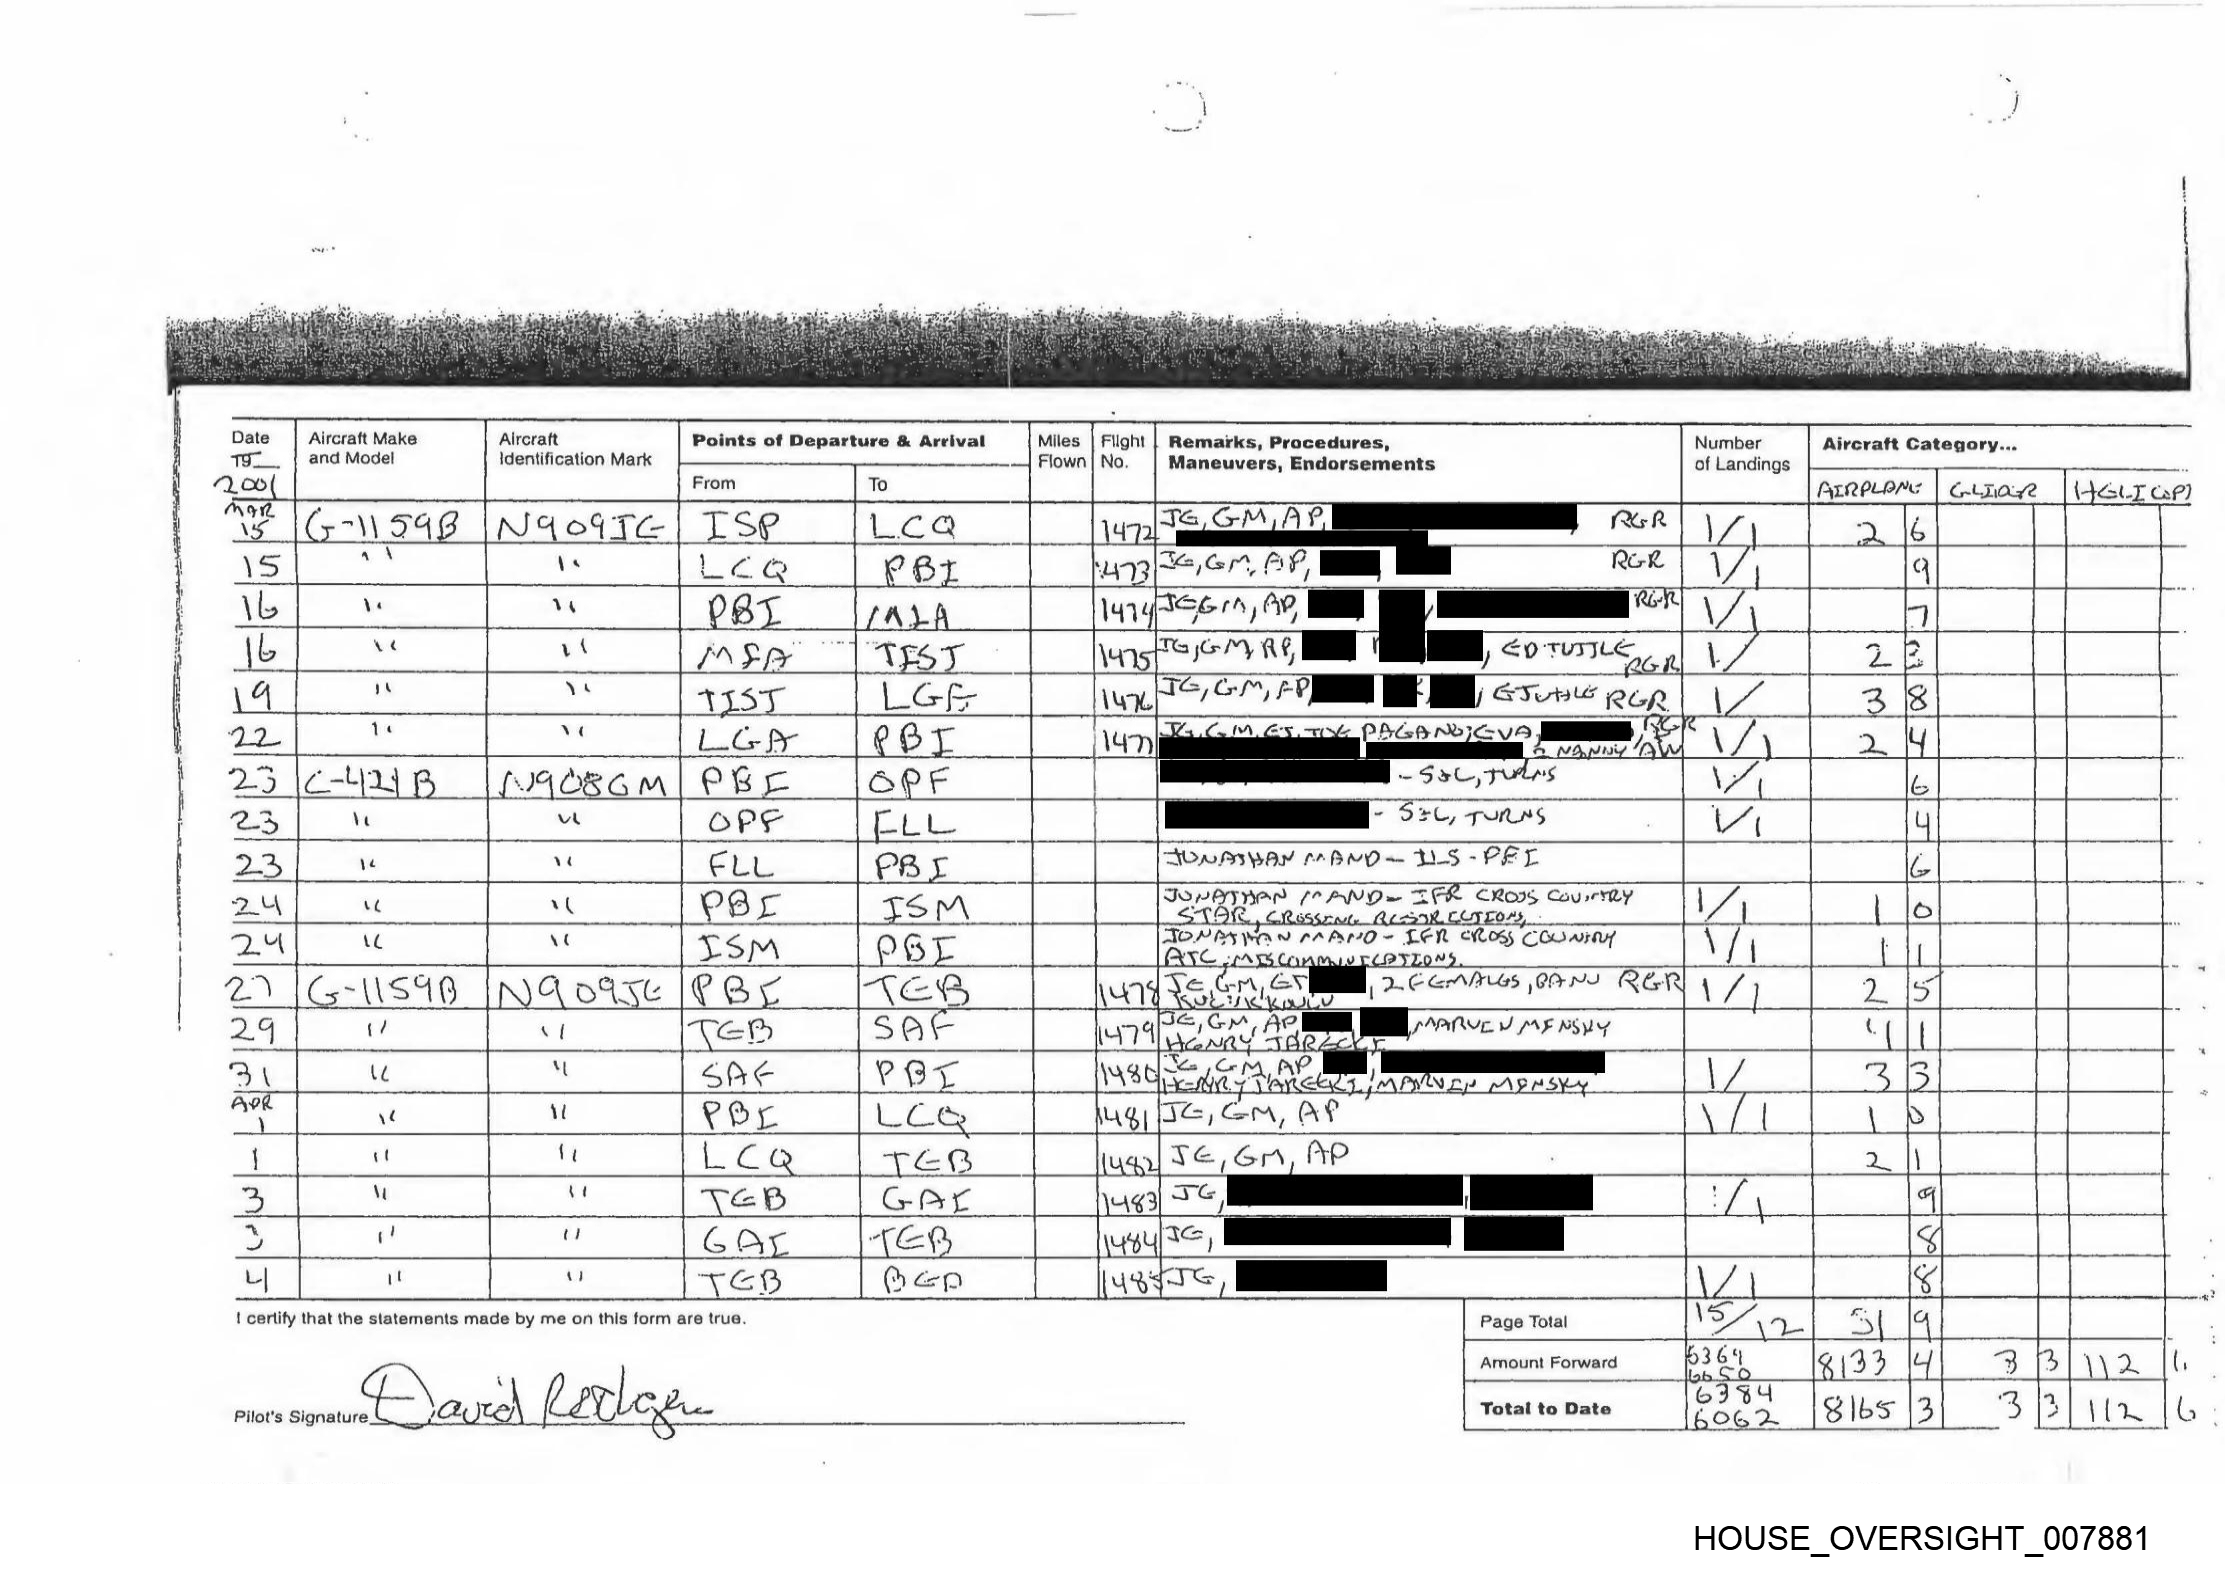 Date Aircraft Make Aircraft Points of Departure & Arrival Miles Flight Remarks, Procedures, Number Aircraft Category...
19 and Model Identification Mark Flown No. Maneuvers, Endorsements of Landings
2001 From To AIRPLANE GLIDER HELICOP
MAR
15 G-1159B N909JE ISP LCQ 1472 JE, GM, AP, RGR 1/1 2 6
15 '' '' LCQ PBI 1473 JE, GM, AP, RGR 1/1 9
16 '' '' PBI MIA 1474 JE, GM, AP, RGR 1/1 7
16 '' '' MIA TIST 1475 JE, GM, AP, , ED TUTTLE RGR 1/ 2 3
19 '' '' TIST LGA 1476 JE, GM, AP, , E TUTTLE RGR 1/ 3 8
22 '' '' LGA PBI 1477 JE, GM, ET, JOE PAGANO, EVA, RGR 1/1 2 4
NANNY AW
23 C-421B N908GM PBI OPF - S&L, TURNS 1/1 6
23 '' '' OPF FLL - S&L, TURNS 1/1 4
23 '' '' FLL PBI JONATHAN MANO - ILS - PBI 6
24 '' '' PBI ISM JONATHAN MANO - IFR CROSS COUNTRY 1/1 1 0
STAR, CROSSING RESTRICTIONS,
24 '' '' ISM PBI JONATHAN MANO - IFR CROSS COUNTRY 1/1 1 1
ATC, MISCOMMUNICATIONS.
27 G-1159B N909JE PBI TEB 1478 JE, GM, ET , 2 FEMALES, BANU RGR 1/1 2 5
29 '' '' TEB SAF 1479 JE, GM, AP, , MARVEN MENSKY 4 1
HENRY JARECKI
31 '' '' SAF PBI 1480 JE, GM, AP 1/ 3 3
HENRY JARECKI, MARVEN MENSKY
APR
1 '' '' PBI LCQ 1481 JE, GM, AP 1/1 1 0
1 '' '' LCQ TEB 1482 JE, GM, AP 2 1
3 '' '' TEB GAI 1483 JE, /1 9
3 '' '' GAI TEB 1484 JE, 8
4 '' '' TEB BED 1485 JE, 1/1 8
I certify that the statements made by me on this form are true.
Page Total 15/12 31 9
Amount Forward 8133 4 3 3 112 6
Pilot's Signature David Rodgers
Total to Date 6384 6062 8165 3 3 3 112 6
HOUSE_OVERSIGHT_007881